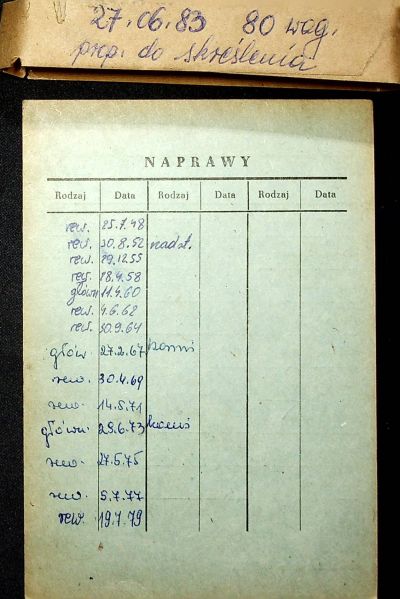 27.06.83 80 wag.
prop. do skreślenia
NAPRAWY
Rodzaj Data Rodzaj Data Rodzaj Data
rew. 25.7.48
rew. 30.8.52 nadzt.
rew. 29.12.55
rew. 18.4.58
główn 11.4.60
rew. 4.6.62
rew. 30.9.64
główn. 27.2.67
rew. 30.4.69
rew. 14.5.71
główn. 29.6.73
rew. 27.5.75
rew. 5.7.77
rew. 19.7.79